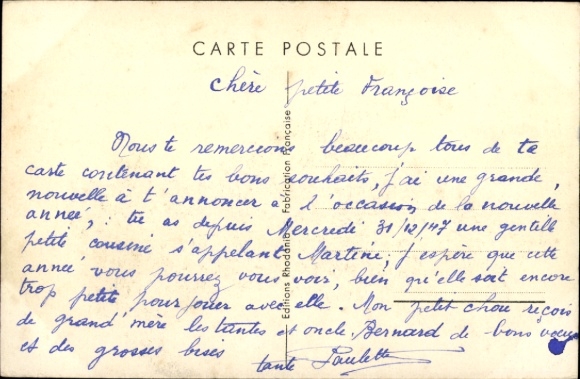 CARTE POSTALE
Chère petite Françoise
Nous te remercions beaucoup tous de ta
carte contenant tes bons souhaits, j'ai une grande,
nouvelle à t'annoncer à l'occasion de la nouvelle
année, : tu as depuis Mercredi 31/12/47 une gentille
petite cousine s'appelant Martine, j'espère que cette
année vous pourrez vous voir, bien qu'elle soit encore
trop petite pour jouer avec elle. Mon petit chou reçois
de grand'mère les tantes et oncle Bernard de bons voeux
et des grosses bises
tante Paulette
Editions Rhodania - Fabrication Française